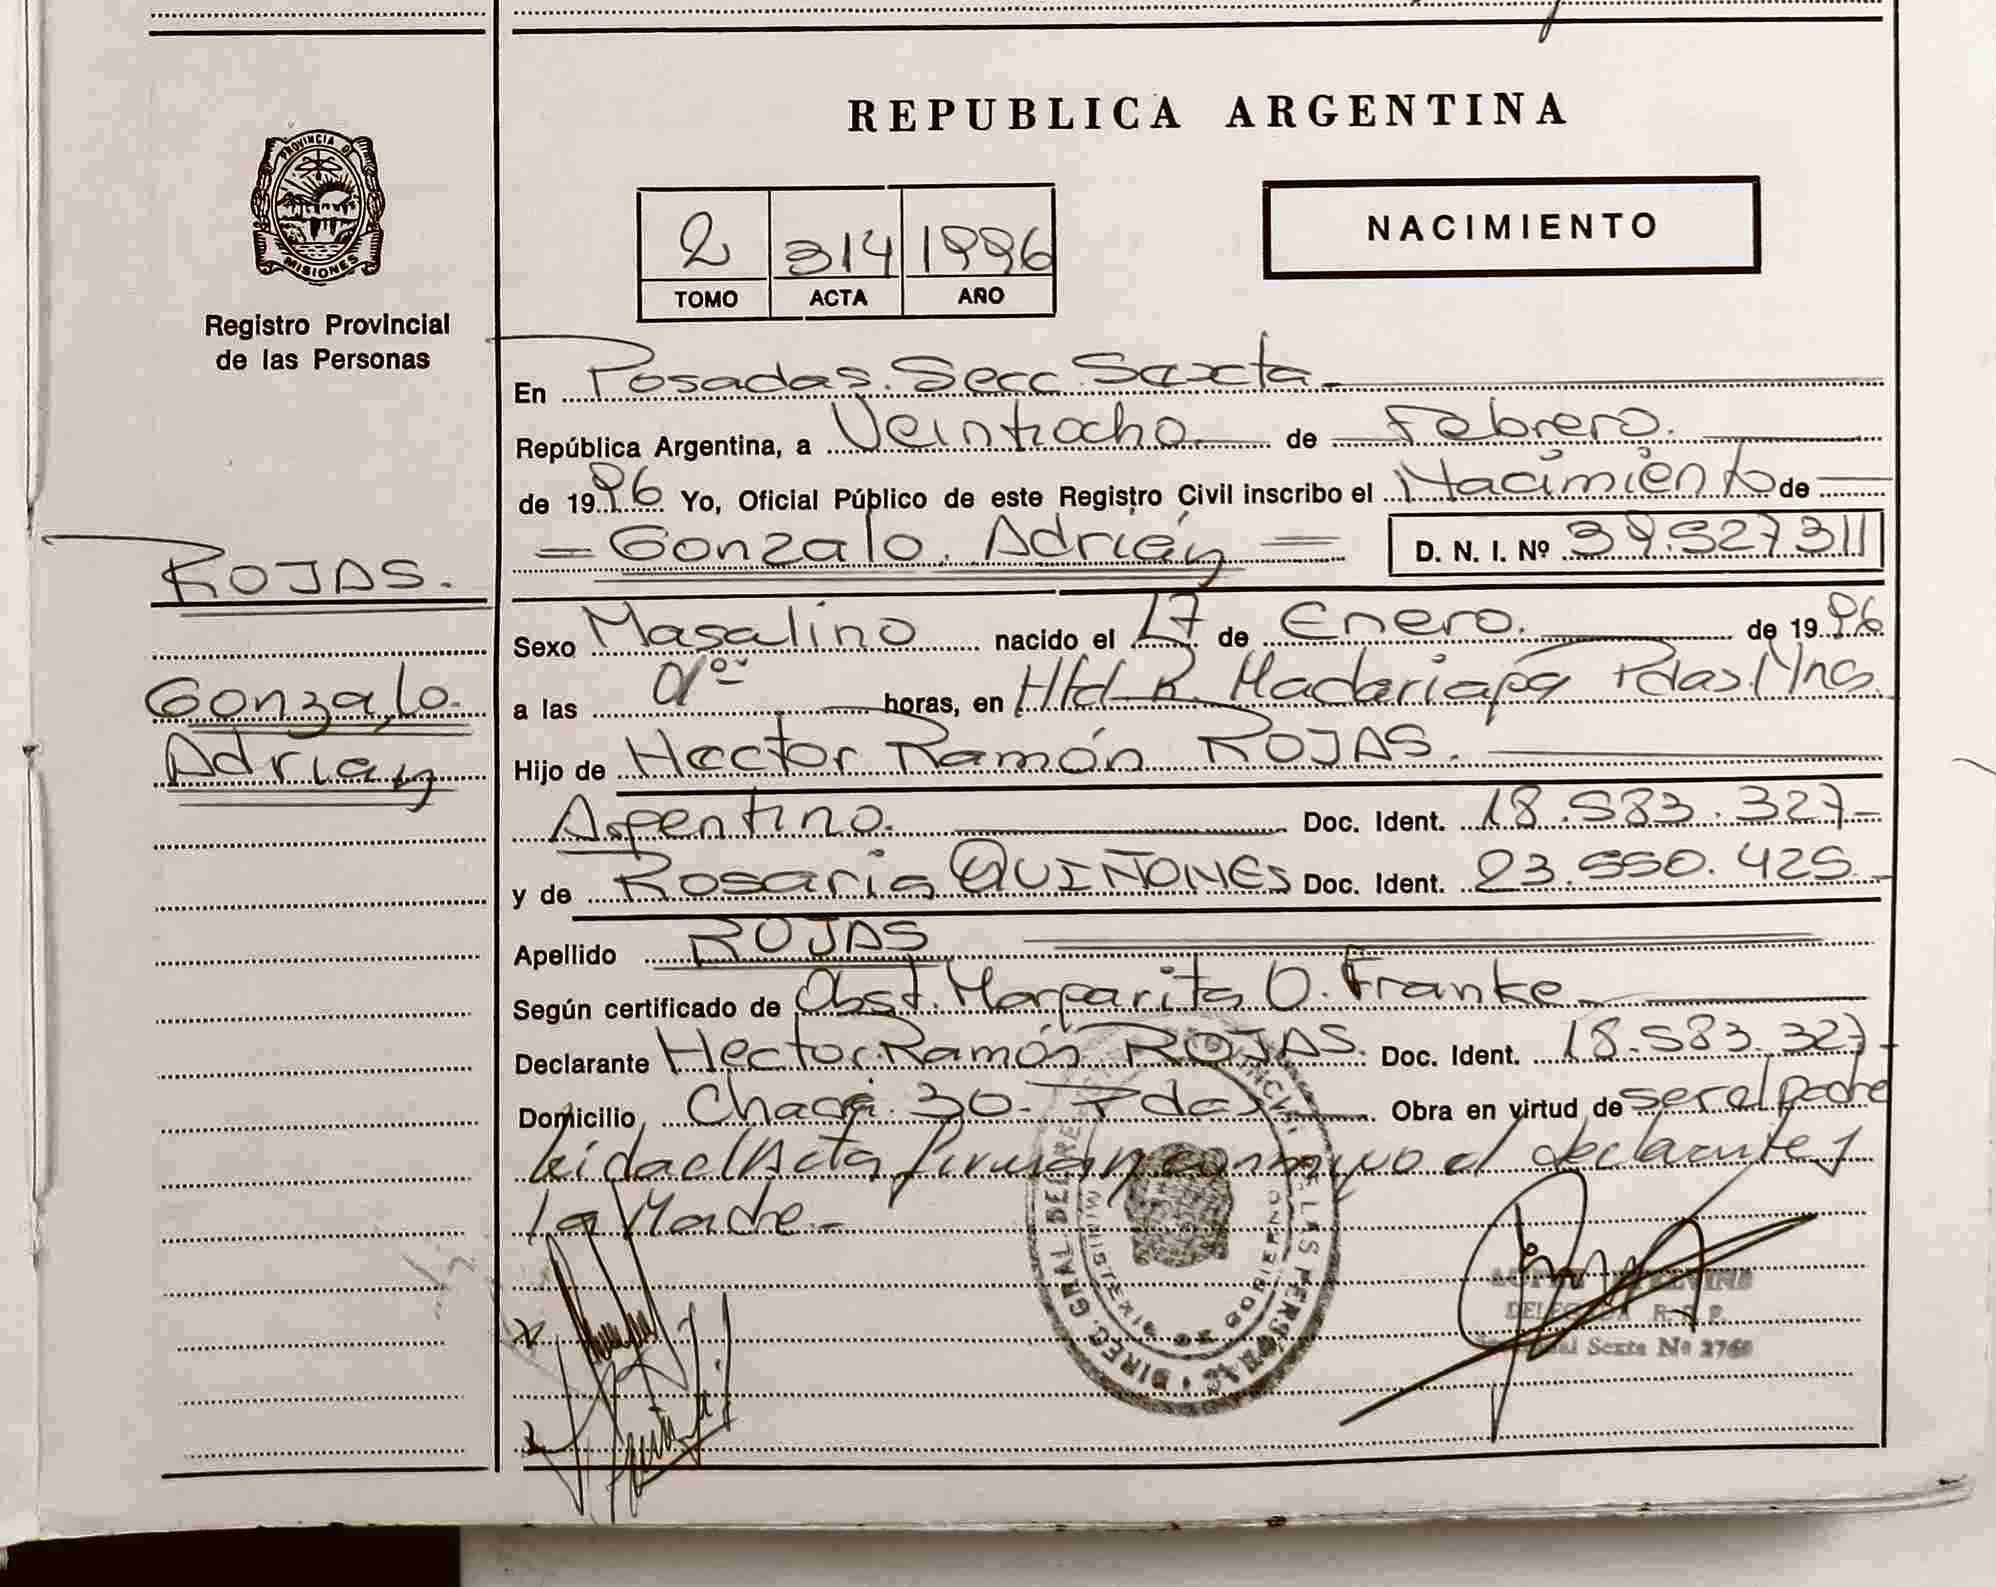 REPUBLICA ARGENTINA
PROVINCIA DE
MISIONES
Registro Provincial
de las Personas
2 314 1996
TOMO ACTA AÑO
NACIMIENTO
En Posadas. Secc. Sexta
República Argentina, a Veintiocho de Febrero.
de 1996 Yo, Oficial Público de este Registro Civil inscribo el Nacimiento de
Gonzalo Adrián D. N. I. Nº 39.527311
ROJAS.
Gonzalo
Adrian
Sexo Masculino nacido el 17 de Enero. de 1996
a las horas, en R. Madariaga Pdas Mnes.
Hijo de Hector Ramón ROJAS.
Argentino. Doc. Ident. 18.583.327-
y de Rosaria QUIÑONES Doc. Ident. 23.550.425
Apellido ROJAS
Según certificado de Obst. Margarita O. Franke
Declarante Hector Ramón ROJAS. Doc. Ident. 18.583.327-
Domicilio Chaca 30. Pdas Obra en virtud de ser el padre
Leida el Acta firman conmigo el declarante y
la Madre.-
DIREC. GRAL. DEL REG. PROVINCIAL DE LAS PERSONAS
MINISTERIO DE GOBIERNO
DELEGADA R.P.P.
Sexta Nº 2760